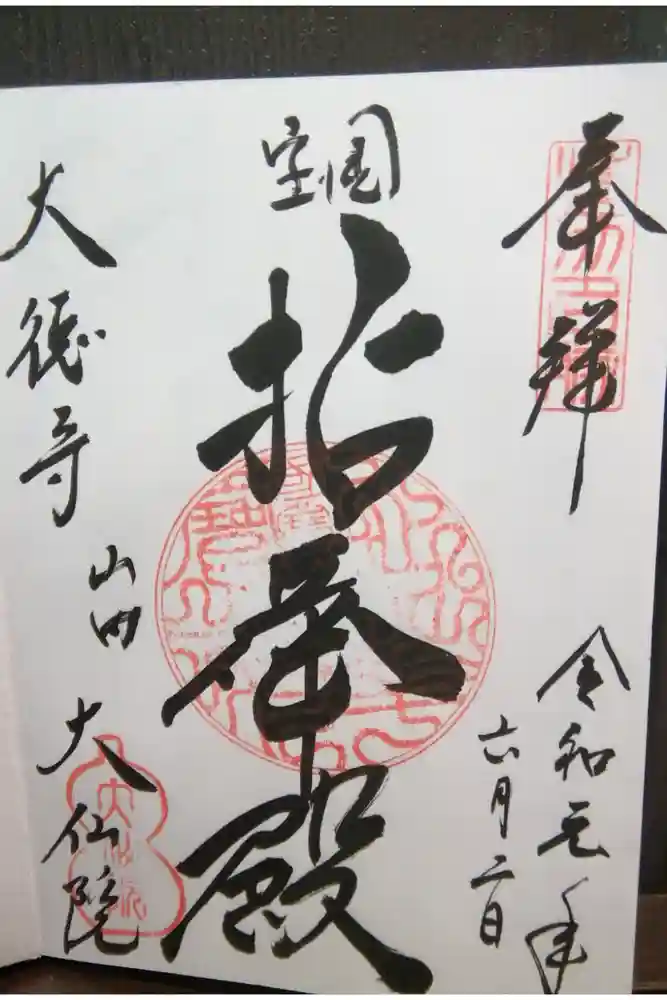 奉拝
令和元年
六月二日
国宝
拈華殿
大徳寺
山内
大仙院